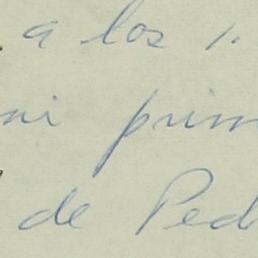 a los 1.
mi prim
de Ped